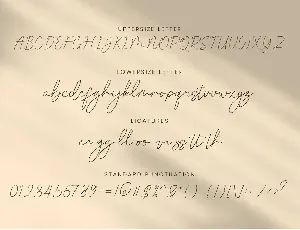 UPPERSIZE LETTER
ABCDEFGHIJKLMNOPQRSTUVWXYZ
LOWERSIZE LETTER
abcdefghijklmnopqrstuvwxyz
LIGATURES
STANDARD PUNCTUATION
0123456789